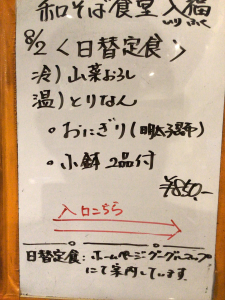 和そば食堂 入福
8/2 〈日替定食〉
冷) 山菜おろし
温) とりなん
• おにぎり(明太子昆布)
• 小鉢 2品付
¥850,-
入口こちら
日替定食:ホームページ・グーグルマップ
にて案内しています。